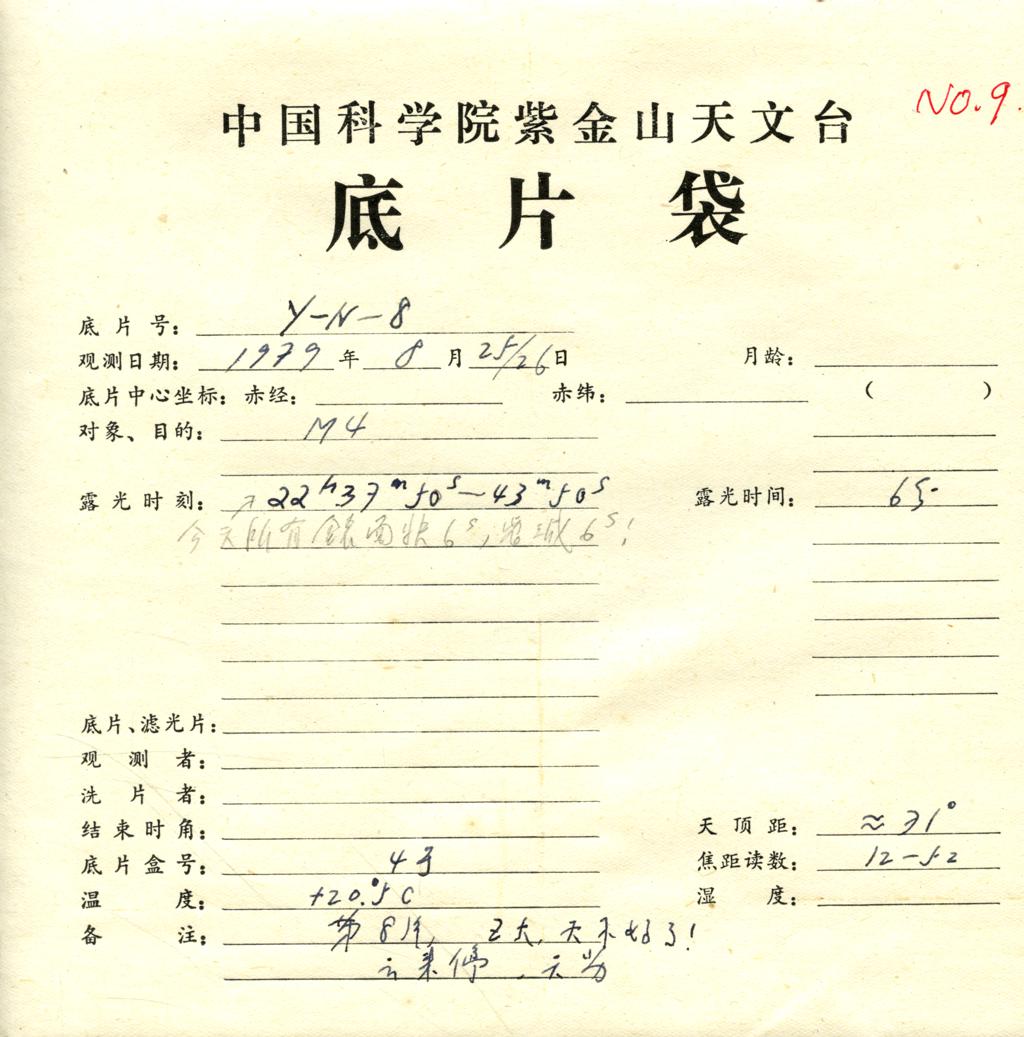 NO.9.
中国科学院紫金山天文台
底片袋
底片号： Y-N-8
观测日期： 1979 年 8 月 25/26 日 月龄：
底片中心坐标：赤经： 赤纬： ( )
对象、目的： M4
露光时刻： 22h37m50s—43m50s 露光时间： 6分
今天所有钟面快6s，需减6s！
底片、滤光片：
观测者：
洗片者：
结束时角： 天顶距： ≈31°
底片盒号： 4号 焦距读数： 12-52
温度： +20.°5C 湿度：
备注： 第8片， Z大，天不好了！
云来停．